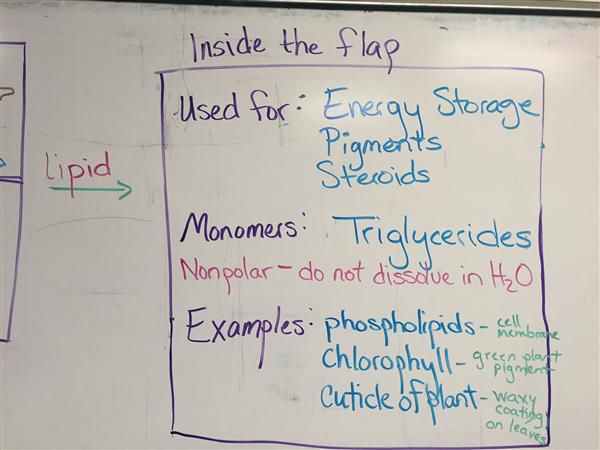 Inside the flap
lipid
Used for: Energy Storage
Pigments
Steroids
Monomers: Triglycerides
Nonpolar - do not dissolve in H₂O
Examples: phospholipids - cell membrane
Chlorophyll - green plant pigment
Cuticle of plant - waxy coating on leaves